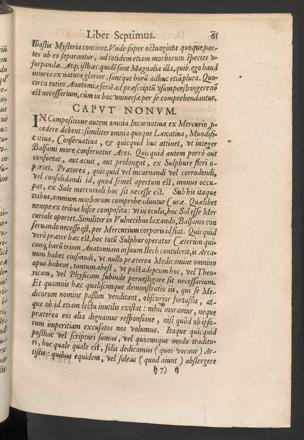 Liber Septimus. 61
illustra Mysteria continet. Unde super octuaginta quinque, par-
tes ab eo separantur, ad totidem etiam morborum species v-
surpandæ. Atq; illhæc quidē sunt Magnalia illa, quib. ego haud
iniuria ex natura glorior: suntque horū adhuc etiā plura. Quo-
circa toties Anatomia ferrè ad præscriptū usum perstringere nō
est necessarium, cum in hoc universa per se comprehendantur.
CAPUT NONUM.
IN Compositione autem omnia Incarnativa ex Mercurio pro-
cedere debent: similiter omnia quoque Laxativa, Mundifi-
cativa, Conservativa, & quicquid huc attinet, ut integer
Balsami more conservetur Ares. Quicquid autem porrò aut
confortat, aut acuit, aut prolongat, ex Sulphure fieri o-
portet. Præterea, quicquid vel incarnandi vel corrodendi,
vel consolidandi id, quod semel apertum est, munus occu-
pat, ex Sale mercuriali hoc sit necesse est. Sub his itaque
tribus, omnium morborum comprehenduntur Curæ. Quælibet
nempe ex tribus hisce composita: veluti culis, hoc Sal esse Mer-
curiale oportet. Similiter in Vulneribus laxando, Balsamo con
servando necesse est, per Mercurium corporis id fiat. Quicquid
verò præter hæc est, hoc totū Sulphur operatur. Cæterùm qui-
cunq; harū trium Anatomiam in suum Ilech contulerit, is Arca-
num habet eiusmodi, ut nullo præterea Medicamine omnino
opus habeat, tantum abest, ut post adeptum hoc, vel Theo-
ricam, vel Physicam subinde pervestigare sit necessarium.
Et quamvis hæc qualiscunque demonstratio iis, qui se Me-
dicorum nomine passim venditant, obscurior fortassis, at-
que ob id etiam lectu inutilis existat: nihil moramur, neque
præterea eos alia dignamur responsione, nisi quòd ob ipso-
rum imperitiam excusatos nos volumus. Itaque quicquid
posthac vel scripturi sumus, vel quocunque modo tradituri,
hoc quale quale est, solis dedicamus (quos vocant) Ar-
tistis: quibus equidem, vel soleas (quod aiunt) abstergere